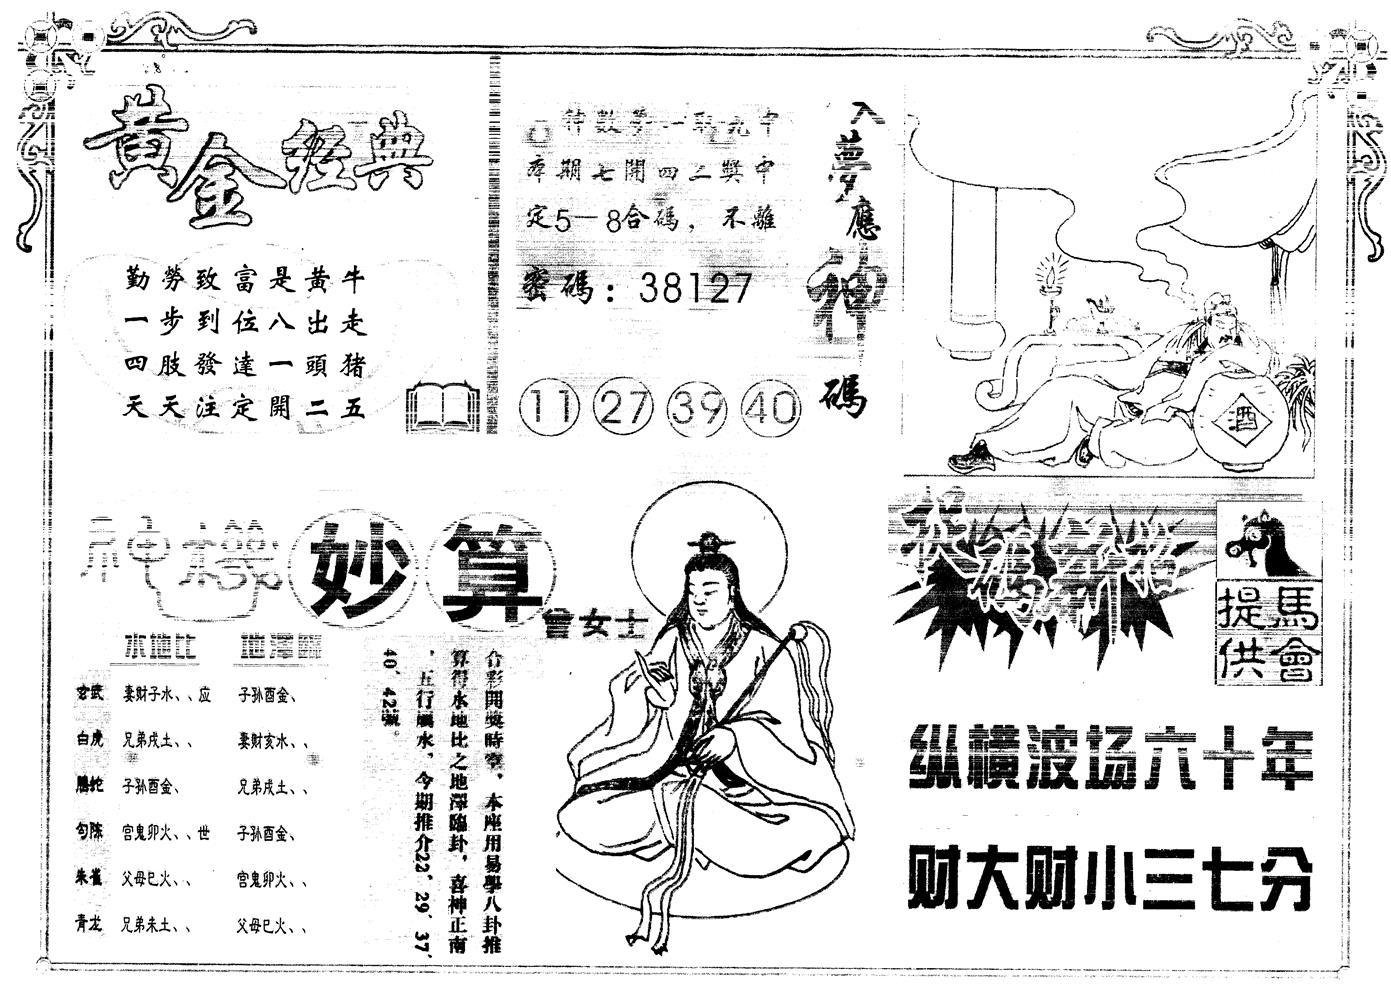 黃金經典
勤勞致富是黃牛
一步到位八出走
四肢發達一頭猪
天天注定開二五
中
期七開四二獎中
定5—8合碼，不離
密碼：38127
11 27 39 40
入夢應神碼
酒
神機妙算
曾女士
水地比 地澤臨
玄武 妻财子水、、应 子孙酉金、
白虎 兄弟戌土、、 妻财亥水、、
腾蛇 子孙酉金、 兄弟戌土、、
勾陈 官鬼卯火、、世 子孙酉金、
朱雀 父母巳火、、 官鬼卯火、、
青龙 兄弟未土、、 父母巳火、、
合彩開獎時空，本座用易學八卦推
算得水地比之地澤臨卦，喜神正南
，五行屬水，今期推介22，29，37，
40，42號。
馬會提供
纵横波场六十年
财大财小三七分